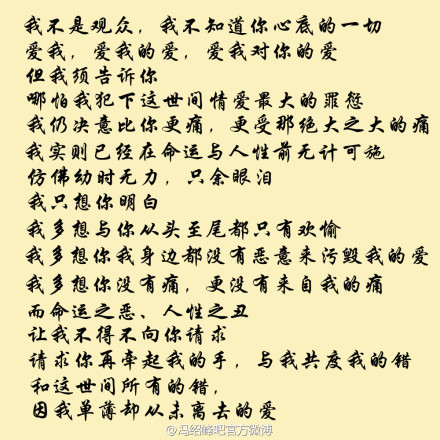 我不是观众，我不知道你心底的一切
爱我，爱我的爱，爱我对你的爱
但我须告诉你
哪怕我犯下这世间情爱最大的罪愆
我仍决意比你更痛，更受那绝大之大的痛
我实则已经在命运与人性前无计可施
仿佛幼时无力，只余眼泪
我只想你明白
我多想与你从头至尾都只有欢愉
我多想你我身边都没有恶意来污毁我的爱
我多想你没有痛，更没有来自我的痛
而命运之恶、人性之丑
让我不得不向你请求
请求你再牵起我的手，与我共度我的错
和这世间所有的错，
因我单薄却从未离去的爱
@冯绍峰吧官方微博